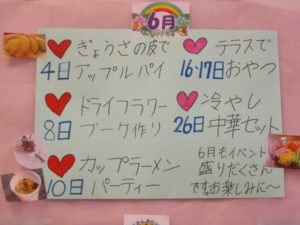 6月
ぎょうざの皮で
4日アップルパイ
テラスで
16・17日おやつ
ドライフラワー
8日ブーケ作り
冷やし
26日中華セット
カップラーメン
10日パーティー
6月もイベント
盛りだくさん
です。お楽しみに〜